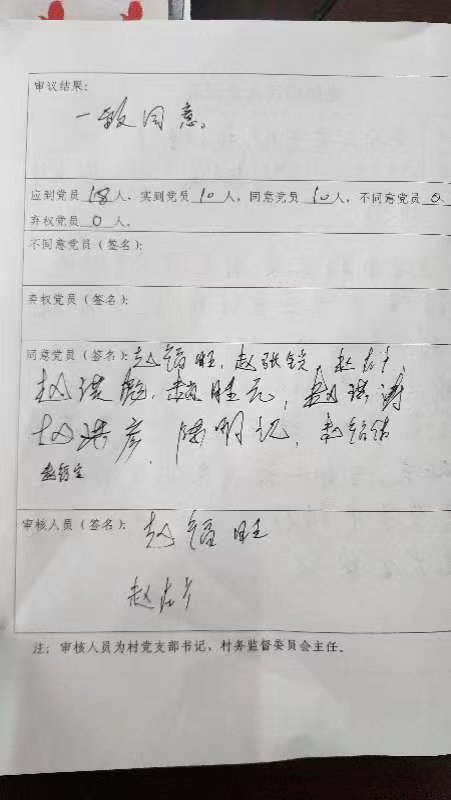 审议结果:
一致同意。
应到党员 18 人，实到党员 10 人，同意党员 10 人，不同意党员 0
弃权党员 0 人。
不同意党员（签名）:
弃权党员（签名）:
同意党员（签名）: 赵福旺，赵张锁，赵
赵洪 赵旺元，赵洪涛
赵洪彦，陈明记，
审核人员（签名）: 赵福旺
赵
注: 审核人员为村党支部书记、村务监督委员会主任。